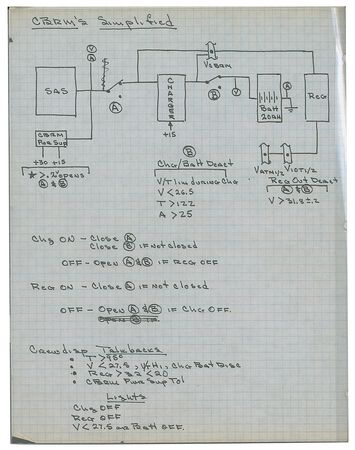 CBRM's Simplified
V A
V CBRM
SAS
A
CHARGER
B
V
A
Batt
20AH
Reg
CBRM
Pwr Sup
+30 +15
+15
B
Chg/Batt Deact
V/T lim during Chg
V < 26.5
T > 122
A > 25
VATM1/2 VOTV1/2
Reg Out Deact
A & B
V > 31.8±.2
A & B
Chg ON - Close A
Close B if not closed
OFF - Open A & B if REG OFF
Reg ON - Close A if not closed
OFF - Open A & B if Chg OFF.
Open B if
Crew disp Talkbacks
• T > 95°
• V < 27.5, V/T Hi, Chg Bat Disc
• Reg > 32 < 20
• CBRM Pwr Sup Tol
Lights
Chg OFF
Reg OFF
V < 27.5 or Batt OFF.